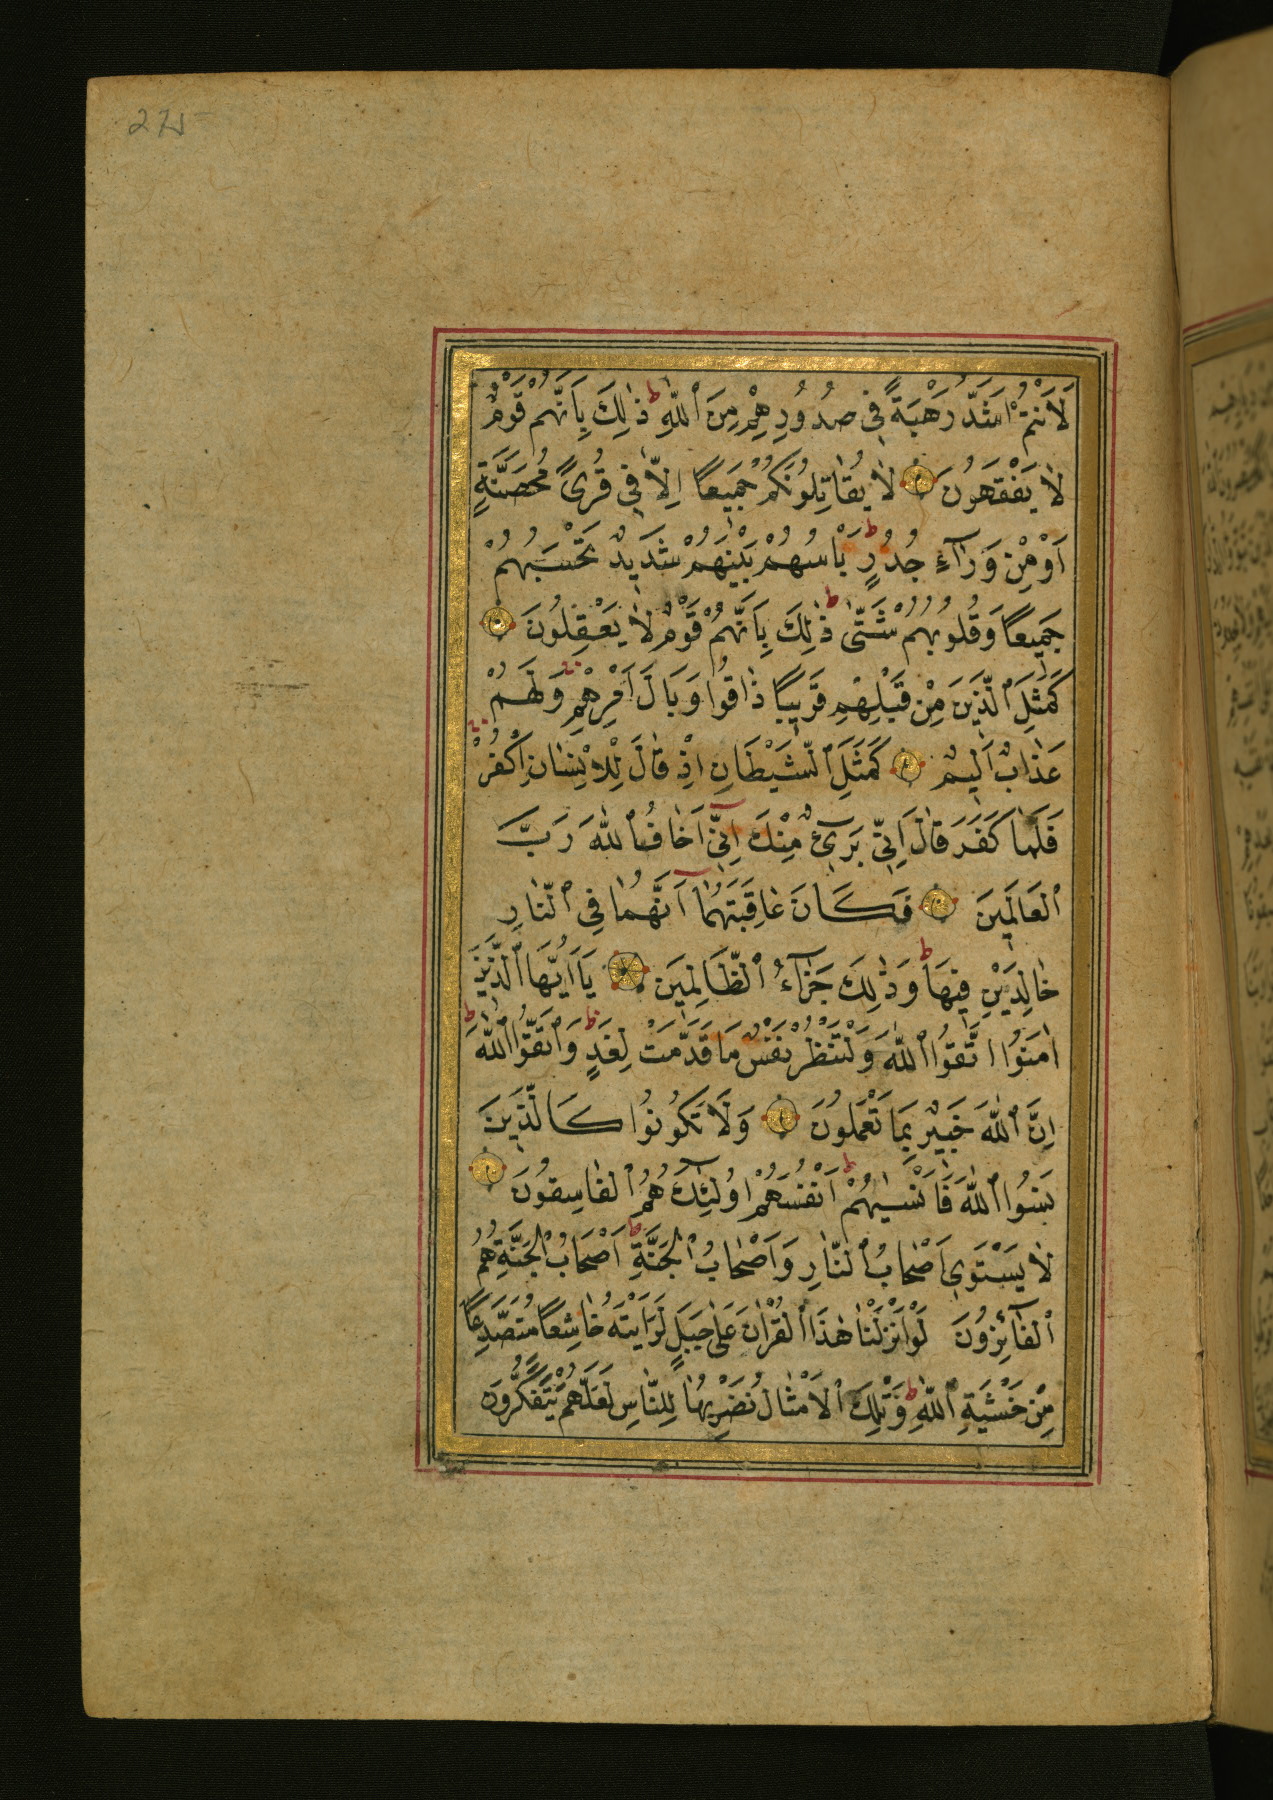 275
لَاَنْتُمْ اَشَدُّ رَهْبَةً فِي صُدُورِهِمْ مِنَ ٱللّٰهِ ط ذٰلِكَ بِاَنَّهُمْ قَوْمٌ
لَا يَفْقَهُونَ لَا يُقَاتِلُونَكُمْ جَمِيعًا اِلَّا فِي قُرًى مُحَصَّنَةٍ
اَوْ مِنْ وَرَآءِ جُدُرٍ ط بَأْسُهُمْ بَيْنَهُمْ شَدِيدٌ تَحْسَبُهُمْ
جَمِيعًا وَقُلُوبُهُمْ شَتّٰى ط ذٰلِكَ بِاَنَّهُمْ قَوْمٌ لَا يَعْقِلُونَ
كَمَثَلِ ٱلَّذِينَ مِنْ قَبْلِهِمْ قَرِيبًا ذَاقُوا وَبَالَ اَمْرِهِمْ وَلَهُمْ
عَذَابٌ اَلِيمٌ كَمَثَلِ ٱلشَّيْطَانِ اِذْ قَالَ لِلْاِنْسَانِ اكْفُرْ
فَلَمَّا كَفَرَ قَالَ اِنِّي بَرِيٓءٌ مِنْكَ اِنِّٓي اَخَافُ ٱللّٰهَ رَبَّ
ٱلْعَالَمِينَ فَكَانَ عَاقِبَتَهُمَآ اَنَّهُمَا فِي ٱلنَّارِ
خَالِدَيْنِ فِيهَا ط وَذٰلِكَ جَزَآءُ ٱلظَّالِمِينَ يَآ اَيُّهَا ٱلَّذِينَ
اٰمَنُوا اتَّقُوا ٱللّٰهَ وَلْتَنْظُرْ نَفْسٌ مَا قَدَّمَتْ لِغَدٍ وَٱتَّقُوا ٱللّٰهَ ط
اِنَّ ٱللّٰهَ خَبِيرٌ بِمَا تَعْمَلُونَ وَلَا تَكُونُوا كَالَّذِينَ
نَسُوا ٱللّٰهَ فَاَنْسٰيهُمْ اَنْفُسَهُمْ ط اُولٰٓئِكَ هُمُ ٱلْفَاسِقُونَ
لَا يَسْتَوِي اَصْحَابُ ٱلنَّارِ وَاَصْحَابُ ٱلْجَنَّةِ ط اَصْحَابُ ٱلْجَنَّةِ هُمُ
ٱلْفَآئِزُونَ لَوْ اَنْزَلْنَا هٰذَا ٱلْقُرْاٰنَ عَلٰى جَبَلٍ لَرَاَيْتَهُ خَاشِعًا مُتَصَدِّعًا
مِنْ خَشْيَةِ ٱللّٰهِ ط وَتِلْكَ ٱلْاَمْثَالُ نَضْرِبُهَا لِلنَّاسِ لَعَلَّهُمْ يَتَفَكَّرُونَ